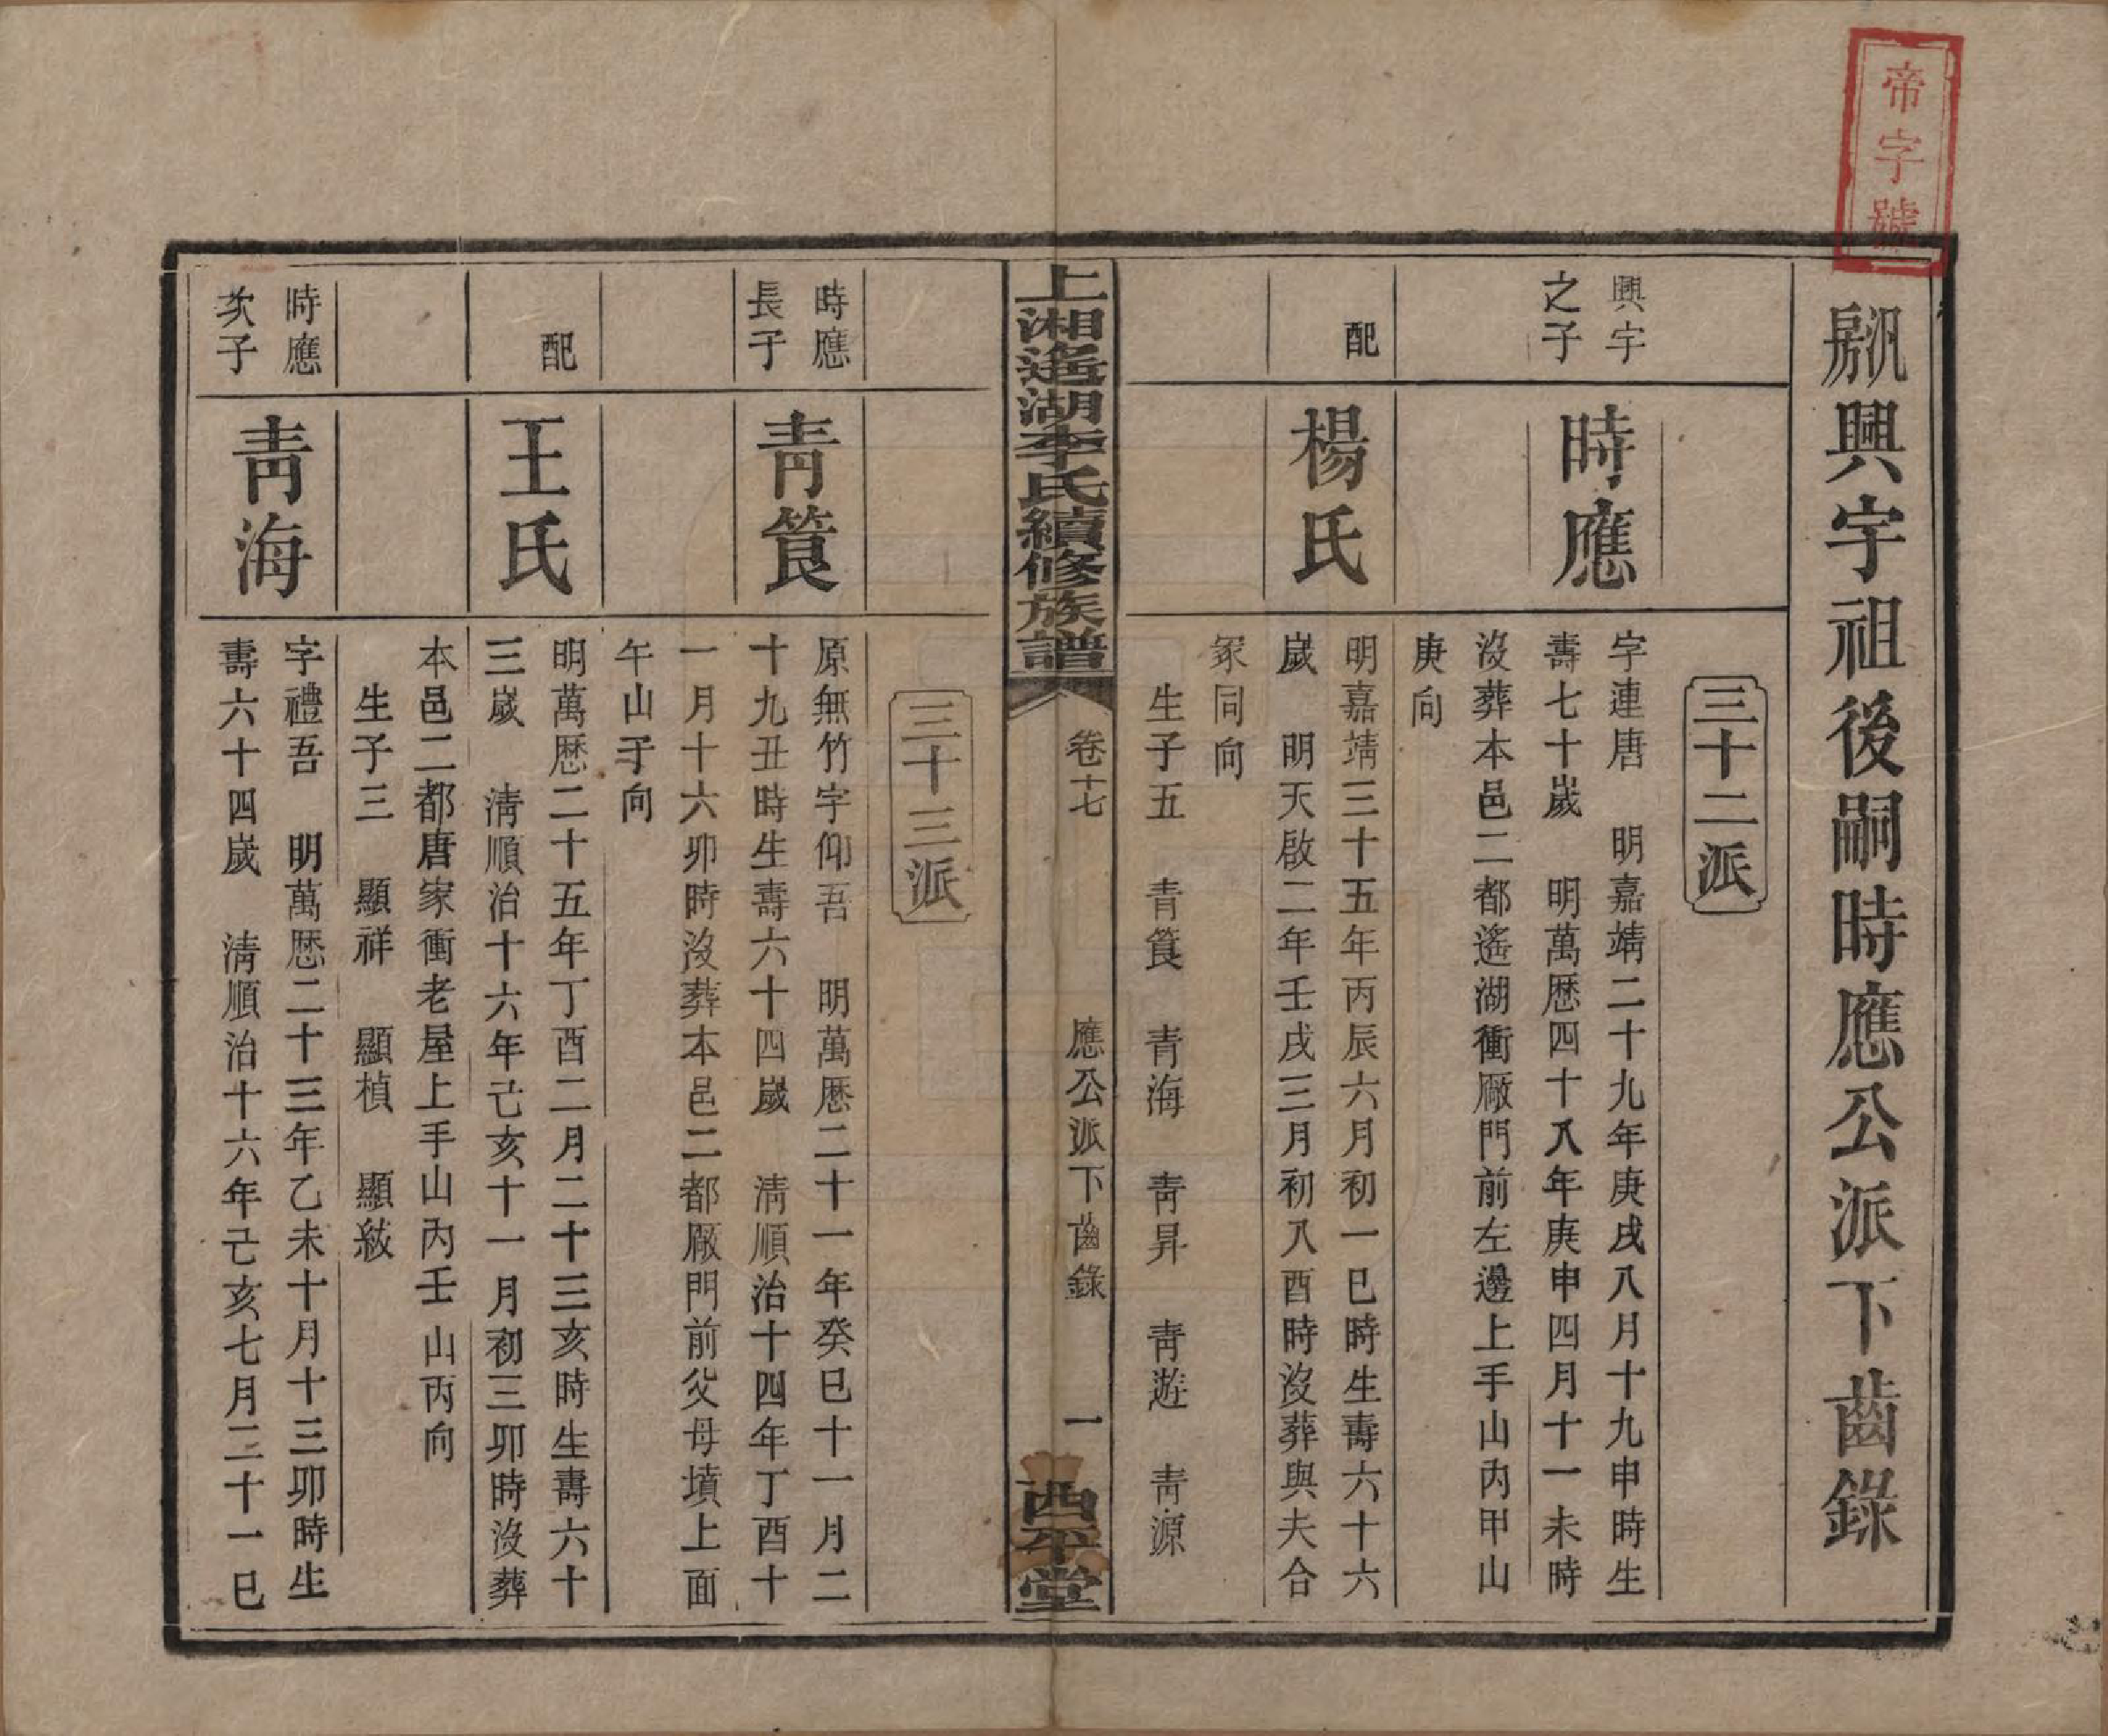 帝字號
興宇祖後嗣時應公派下齒錄
三十二派
興宇
之子
時應
字連唐 明嘉靖二十九年庚戌八月十九申時生
壽七十歲 明萬歷四十八年庚申四月十一未時
沒葬本邑二都遙湖衝廠門前左邊上手山內甲山
庚向
配
楊氏
明嘉靖三十五年丙辰六月初一巳時生壽六十六
歲 明天啟二年壬戌三月初八酉時沒葬與夫合
冢同向
生子五 青筤 青海 青昇 青遊 青源
上湘遙湖李氏續修族譜
卷十七
應公派下齒錄
一
西平堂
三十三派
時應
長子
青筤
原無竹字仰吾 明萬歷二十一年癸巳十一月二
十九丑時生壽六十四歲 清順治十四年丁酉十
一月十六卯時沒葬本邑二都廠門前父母墳上面
午山子向
配
王氏
明萬歷二十五年丁酉二月二十三亥時生壽六十
三歲 清順治十六年己亥十一月初三卯時沒葬
本邑二都唐家衝老屋上手山內壬山丙向
生子三 顯祥 顯楨 顯紱
時應
次子
青海
字禮吾 明萬歷二十三年乙未十月十三卯時生
壽六十四歲 清順治十六年己亥七月二十一巳